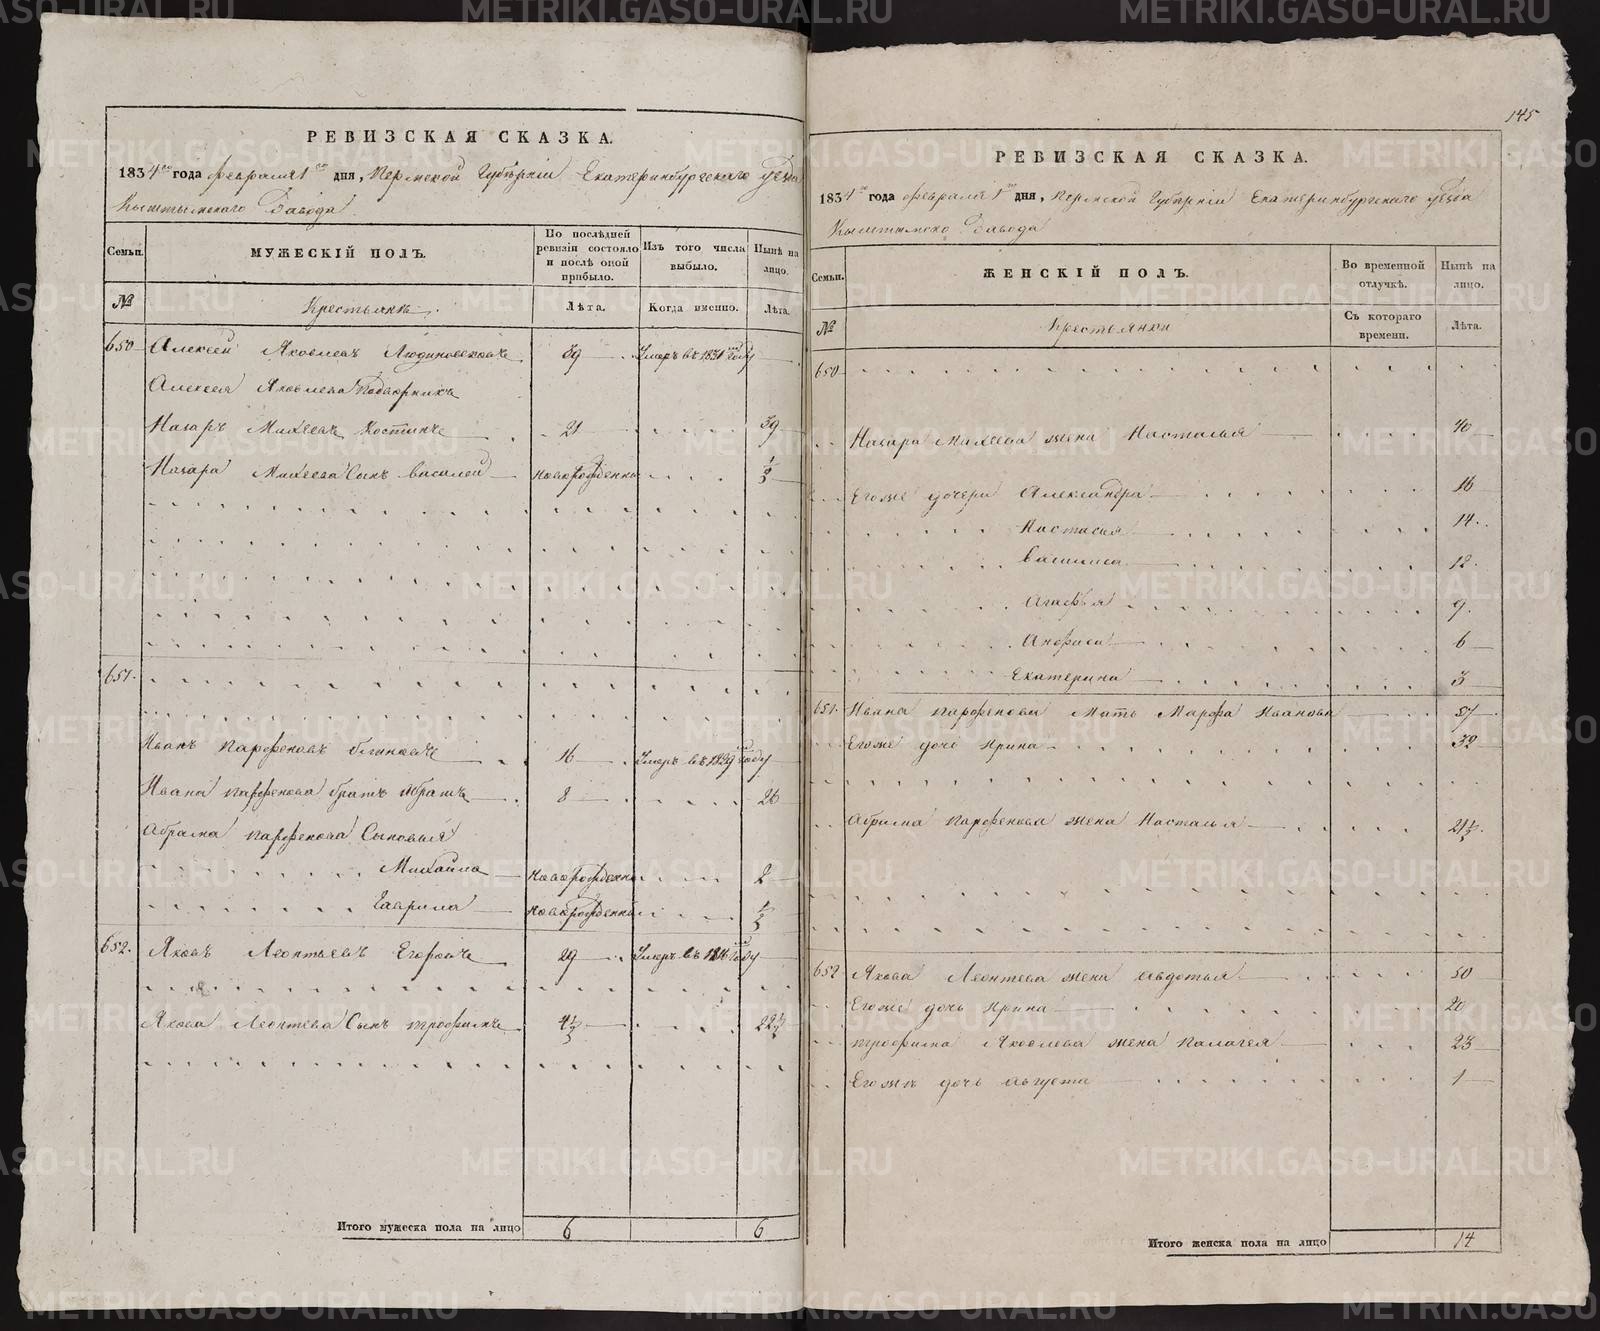 РЕВИЗСКАЯ СКАЗКА.
1834го года февраля 1го дня, Пермской Губерніи Екатеринбургскаго уезда
Кыштымскаго Завода
Семьи. МУЖЕСКІЙ ПОЛЪ. По послѣдней ревизіи состояло и послѣ оной прибыло. Изъ того числа выбыло. Нынѣ на лицо.
№ Крестьяне. Лѣта. Когда именно. Лѣта.
650 Алексей Яковлевъ 39 Умеръ въ 1831м году
Алексея Яковлева
Назаръ Михеевъ Костинъ 21 39
Назара Михеева Сынъ Василей новорожденны 1/2
651.
Иванъ Парфеновъ 16 Умеръ въ 1829м году
Ивана Парфенова братъ Абрамъ 8 26
Абрама Парфенова Сыновья
Михайла новорожденны 2
Гаврила новорожденны 1/2
652. Яковъ Леонтьевъ 29 Умеръ въ году
Якова Леонтева Сынъ трофимъ 4 1/2 22 1/2
Итого мужеска пола на лицо 6 6
145
РЕВИЗСКАЯ СКАЗКА.
1834го года февраля 1го дня, Пермской Губерніи Екатеринбургскаго уезда
Кыштымско Завода
Семьи. ЖЕНСКІЙ ПОЛЪ. Во временной отлучкѣ. Нынѣ на лицо.
№ Крестьянки Съ котораго времени. Лѣта.
650
Назара Михеева жена Насталья 40
Егоже дочери Александра 16
Настасья 14
Василиса 12
Агафья 9
Анфиса 6
Екатерина 3
651. Ивана Парфенова Мать Марфа Иванова 57
Егоже дочь Ирина 32
Абрама Парфенова жена Насталья 21 1/2
652 Якова Леонтева жена Авдотья 50
Егоже дочь Ирина 20
трофима Яковлева жена Палагея 23
Егожъ дочь Августа 1
Итого женска пола на лицо 14
METRIKI.GASO-URAL.RU